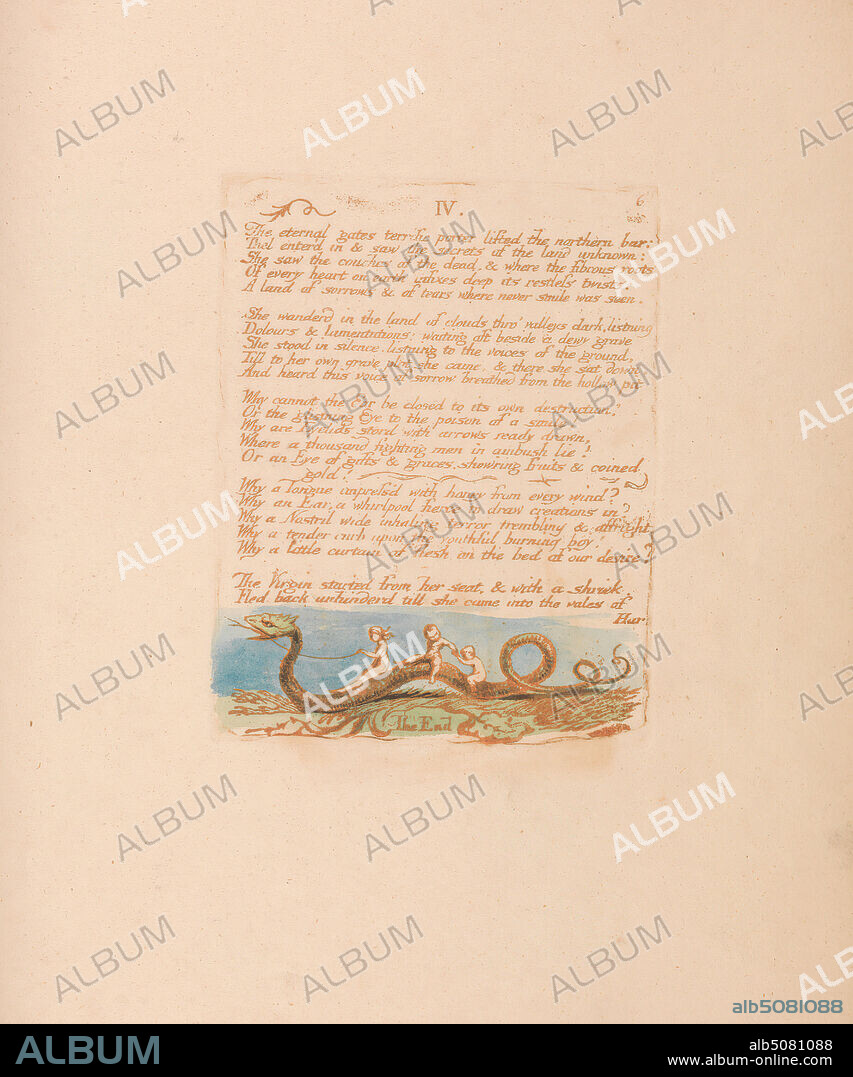 IV.
6
The eternal gates terrific porter lifted the northern bar:
Thel enter'd in & saw the secrets of the land unknown:
She saw the couches of the dead, & where the fibrous roots
Of every heart on earth infixes deep its restless twists:
A land of sorrows & of tears where never smile was seen.
She wanderd in the land of clouds thro' valleys dark, listning
Dolours & lamentations: waiting oft beside a dewy grave
She stood in silence, listning to the voices of the ground,
Till to her own grave plot she came, & there she sat down,
And heard this voice of sorrow breathed from the hollow pit
Why cannot the Ear be closed to its own destruction?
Or the glistning Eye to the poison of a smile!
Why are Eyelids stord with arrows ready drawn,
Where a thousand fighting men in ambush lie!
Or an Eye of gifts & graces, showring fruits & coined
gold!
Why a Tongue impress'd with honey from every wind?
Why an Ear, a whirlpool fierce to draw creations in?
Why a Nostril wide inhaling terror trembling & affright
Why a tender curb upon the youthful burning boy.
Why a little curtain of flesh on the bed of our desire?
The Virgin started from her seat, & with a shriek
Fled back unhinderd till she came into the vales of
Har.
The End
ALBUM
alb5081088
ALBUM
alb5081088
www.album-online.com